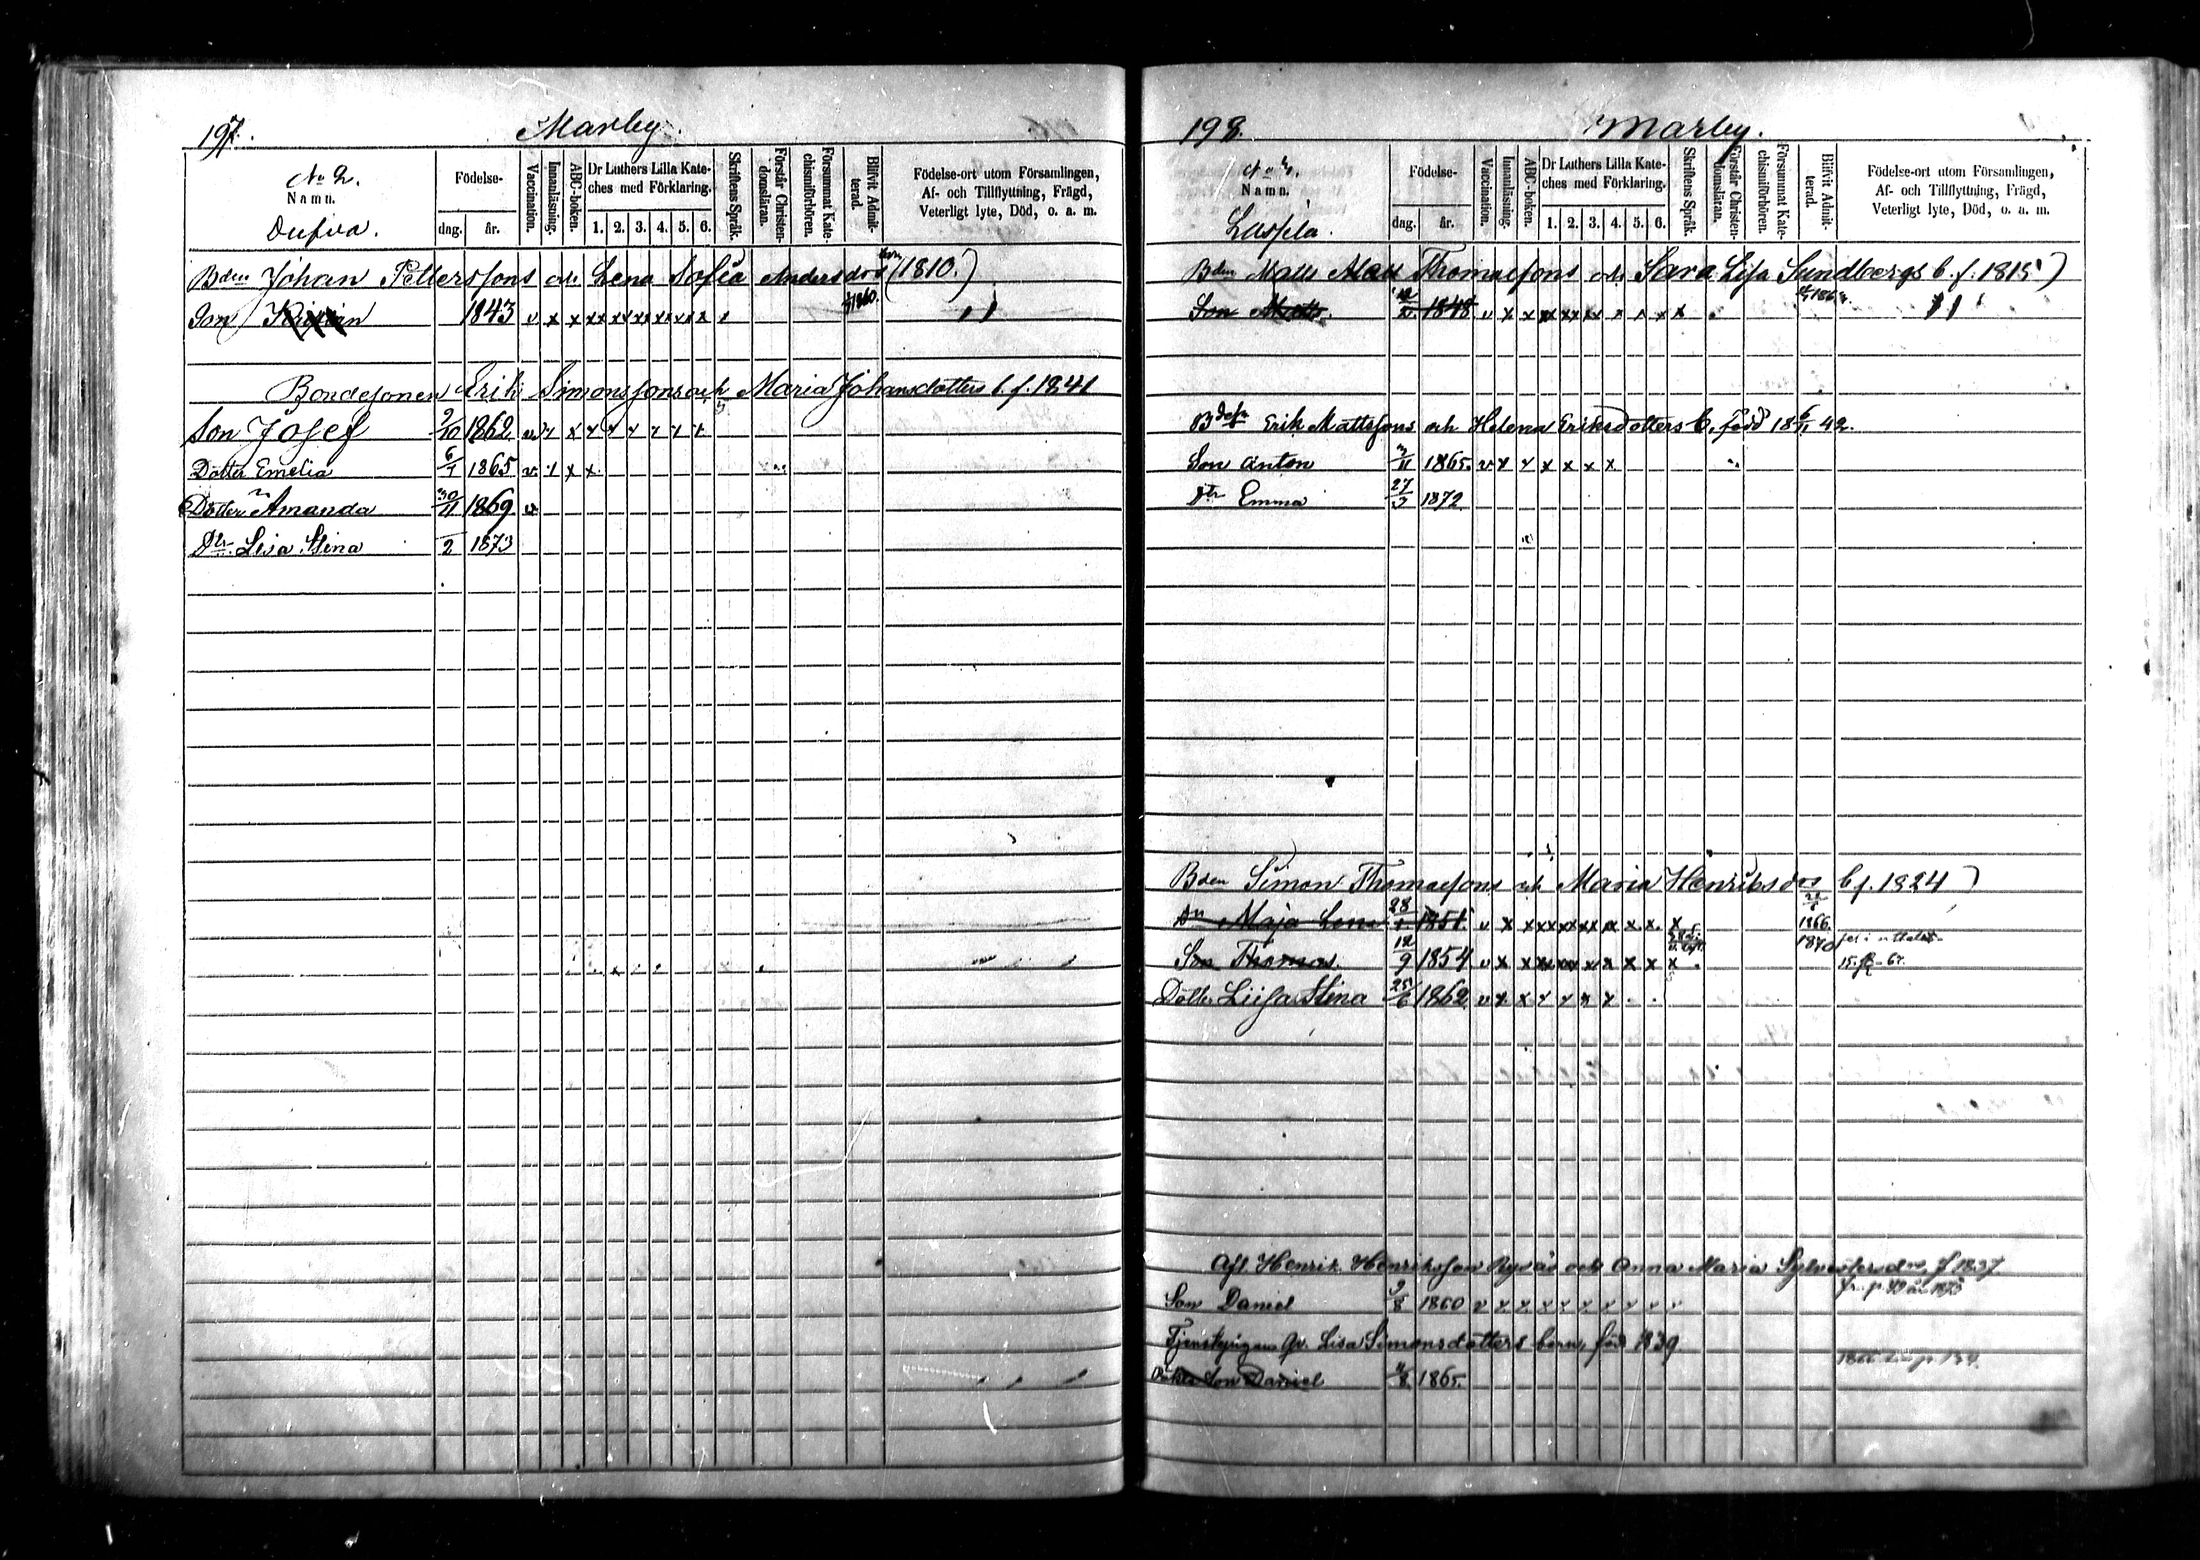 197.
Marby.
No 2.
Namn.
Dufva.
Födelse-
dag.
år.
Vaccination.
Innanläsning.
ABC-boken.
Dr Luthers Lilla Kate-
ches med Förklaring.
1. 2. 3. 4. 5. 6.
Skriftens Språk.
Förstår Christen-
domsläran.
Försummat Kate-
chismiförhören.
Blifvit Admit-
terad.
Födelse-ort utom Församlingen,
Af- och Tillflyttning, Frägd,
Veterligt lyte, Död, o. a. m.
Bden Johan Pettersfons och Lena Sofia Andersdors barn (1810.)
Son 1843 v x x xx xx xx xx xx x 1860.
Bondesonen Erik Simonsfons och Maria Johansdotters b. f. 1841
Son Josef 9/10 1862 v
Dotter Emelia 6/1 1865 v
Dotter Amanda 30/11 1869 v
Dtr. Lisa Stina 1/2 1873
198.
Marby.
No 4.
Namn.
Laspila.
Födelse-
dag.
år.
Vaccination.
Innanläsning.
ABC-boken.
Dr Luthers Lilla Kate-
ches med Förklaring.
1. 2. 3. 4. 5. 6.
Skriftens Språk.
Förstår Christen-
domsläran.
Försummat Kate-
chismiförhören.
Blifvit Admit-
terad.
Födelse-ort utom Församlingen,
Af- och Tillflyttning, Frägd,
Veterligt lyte, Död, o. a. m.
Bden Matts Thomaefons och Sara Lisa Sundbergs b. f. 1815)
Son Matts. 1848 v x x
Erik Mattsfons och Helena Eriksdotters b. född 18 42.
Son Anton 1865. v x x x x x x
Dtr Emma 27/3 1872
Bden Simon Thomaefons och Maria Henriksdos b f. 1824)
Dtr Maja Lena 28/1 1851 v x 1866.
Son Thomas 12/9 1854 v x 1870
Dotter Liisa Stina 25/6 1862 v x
Henrik Henriksson och Anna Maria Sylvestersdrs f 1837
Son Daniel 9/8 1860 v x
Lisa Simonsdotters barn, föd 1839
Son Daniel 1865.